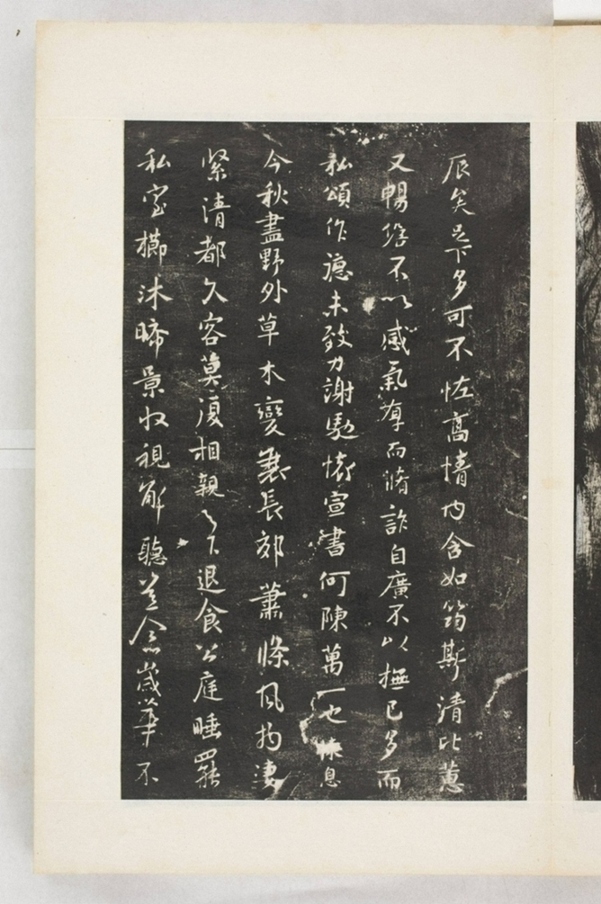 辰矣足下多可不恠高情内含如筠斯清比蕙
又暢締不以感氣厚而脩詐自廣不以撫已多而
私頌作德未致力謝馳懷宣書何陳萬一也休息
今秋盡野外草木變衰長郊蕭條風物淒
緊清都久客莫復相親足下退食公庭睡罷
私室櫛沐晞景收視解聽並念歲華不